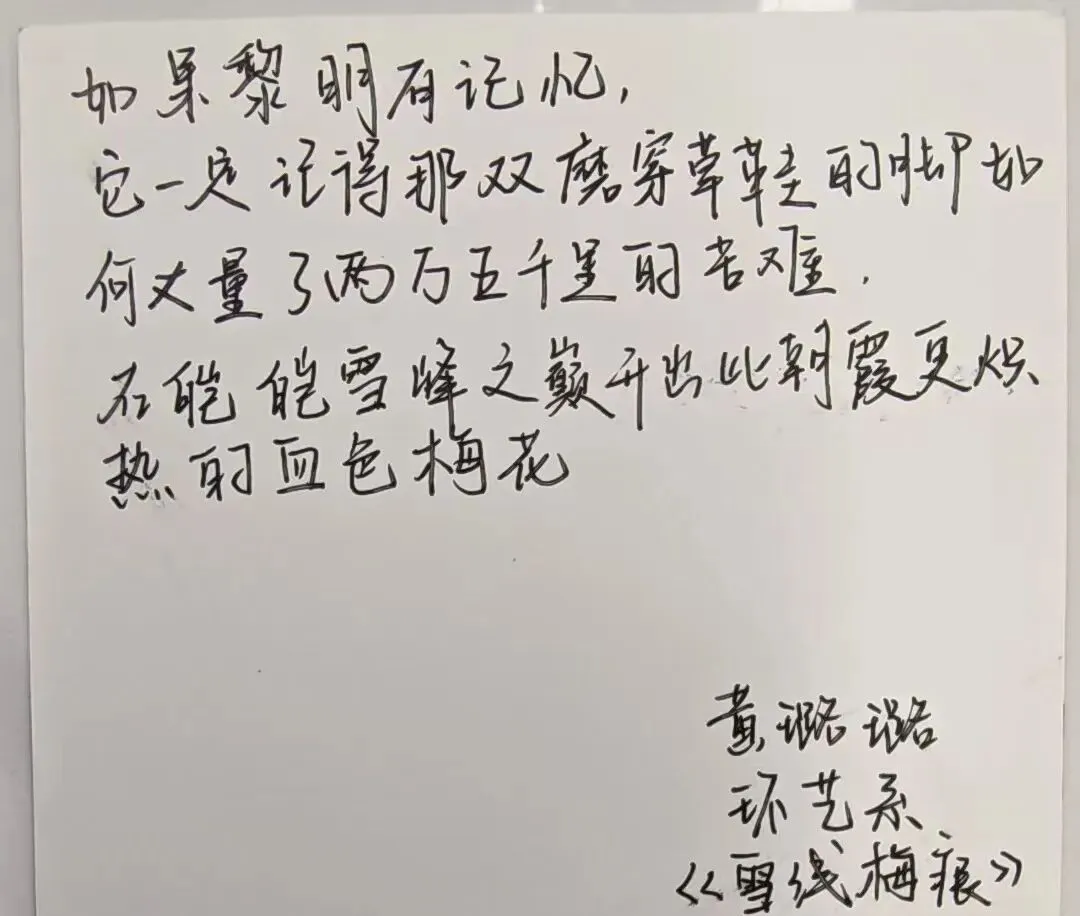 如果黎明有记忆,
它一定记得那双磨穿草鞋的脚如
何丈量了两万五千里的苦难.
在皑皑雪峰之巅开出比朝霞更炽
热的血色梅花
黄璐璐
环艺系
《雪线梅痕》